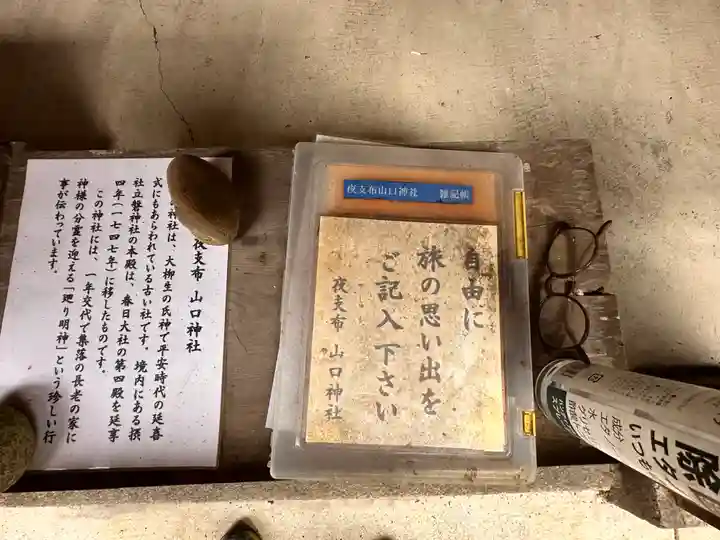 夜支布 山口神社
神社は、大柳生の氏神で平安時代の延喜
式にもあらわれている古い社です。境内にある摂
社立磐神社の本殿は、春日大社の第四殿を延享
四年(一七四七年)に移したものです。
この神社には、一年交代で集落の長老の家に
神様の分霊を迎える「廻り明神」という珍しい行
事が伝わっています。
夜支布山口神社 雑記帳
自由に
旅の思い出を
ご記入下さい
夜支布 山口神社
除
エタ
いつも
成分
エタ
水
グリ